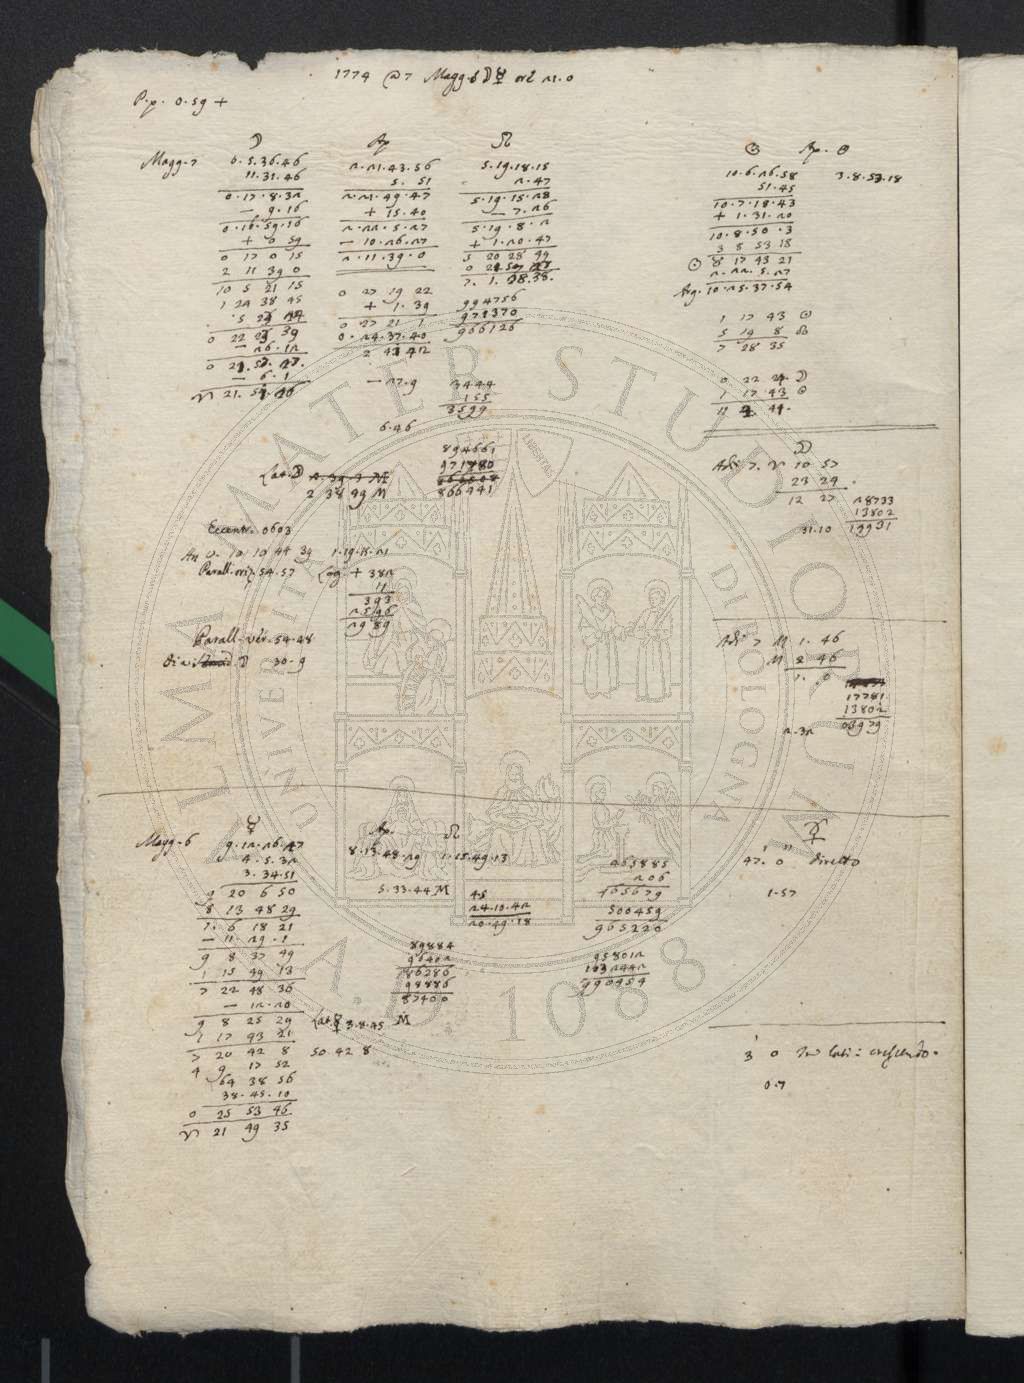 1774 @ 7 Magg. 6 ☽ ☿ ore 21. 0
P.p. 0. 59 +
☽
Magg. 7 6. 5. 36. 46
11. 31. 46
0. 17. 8. 32
— 9. 16
0. 16. 59. 16
+ 0 59
0 17 0 15
2 11 39 0
10 5 21 15
0 22 29 39
— 26. 12
— 6. 1
Ap
2. 21. 43. 56
5. 51
2. 21. 49. 47
+ 15. 40
2. 22. 5. 27
— 10. 26. 27
2. 11. 39. 0
0 27 19 22
+ 1. 39
0 27 21 1
0. 24. 37. 40
— 27. 9
6. 46
☊
5. 19. 18. 15
2. 47
5. 19. 15. 28
— 7. 26
5. 19. 8. 2
+ 1. 20. 47
5 20 28 49
7. 1. 28. 38.
994756
971370
966126
3444
155
3599
894661
971780
866441
☉ Ap. ☉
10. 6. 26. 58 3. 8. 53. 18
51. 45
10. 7. 18. 43
+ 1. 31. 20
10. 8. 50. 3
3 8 53 18
☉ 8 17 43 21
2. 22. 5. 27
Arg. 10. 25. 37. 54
1 17 43 ☉
5 19 8 ☊
7 28 35
0 22 24 ☽
1 17 43 ☉
11 4 41.
Lat. ☽
2 38 49 M
Eccentr. 0603
An v. 10 10 44 39 1. 19. 15. 21
Parall. oriz. 54. 57 Log. + 382
11
393
2596
2989
Parall. ver. 54. 28
Dia. ☽ 30. 9
☽
Adi 7. ♈ 10 57
23 24
12 27 28733
13802
31. 10 19931
Adi 7 M 1. 46
M 2 46
1. 0
17781
13802
2. 32 03979
☿
Magg. 6 9. 12. 26. 27
4. 5. 32
3. 34. 51
9 20 6 50
8 13 48 29
1. 6 18 21
— 11. 29. 1
9 8 37 49
1 15 49 13
7 22 48 36
— 12. 20
9 8 25 29
1 17 43 21
7 20 42 8
4 9 17 52
64 38 56
38. 45. 10
0 25 53 46
♈ 21 49 35
Ap. ☊
8. 13. 48. 29 1. 15. 49. 13
5. 33. 44 M
45
24. 10. 42
20. 49. 18
89884
96402
86286
98886
87400
Lat. ☿ 3. 8. 45 M
50 42 8
965885
206
465679
500459
965220
958012
1032442
990454
☿
47' 0" diretto
1. 57
3' 0 In lati: crescendo.
0. 7
ALMA MATER STUDIORUM
UNIVERSITÀ DI BOLOGNA
A.D. 1088
LIBERTAS